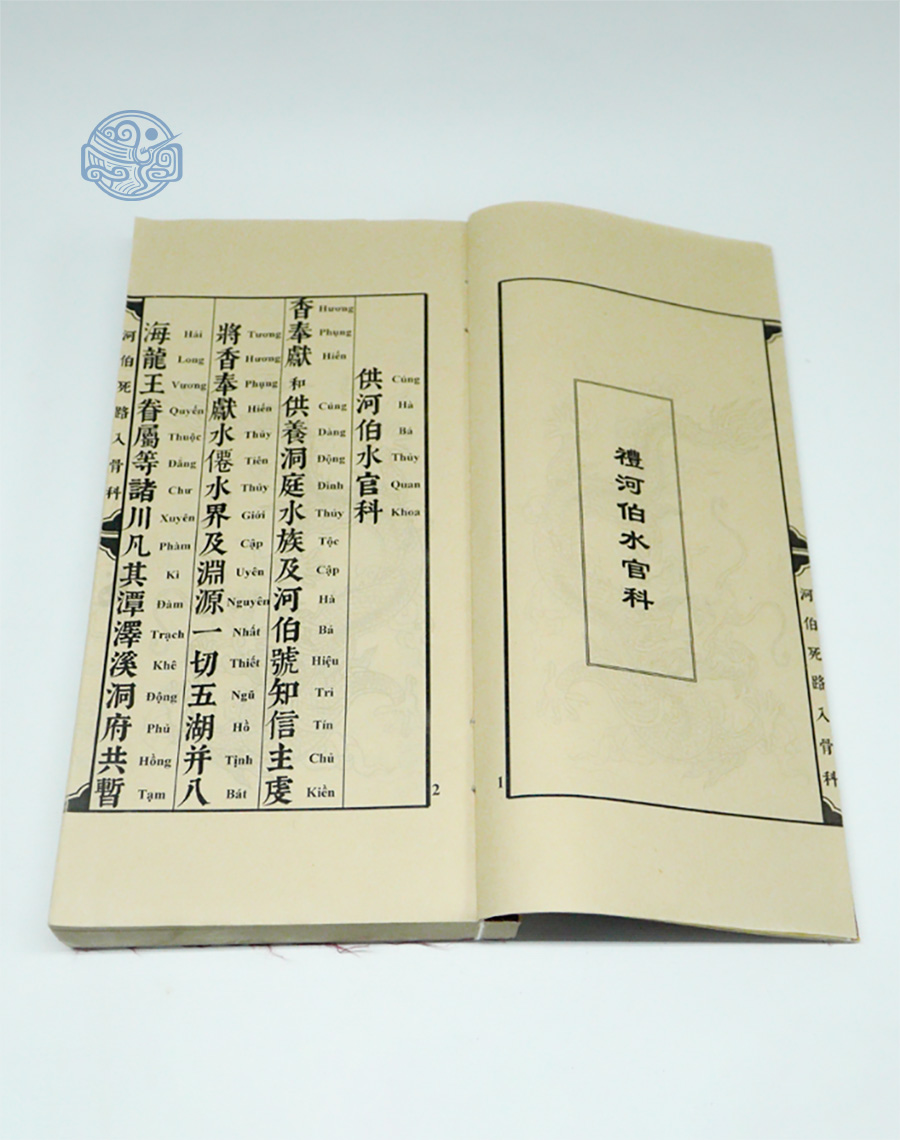 河伯死路入骨科
禮河伯水官科
1
供河伯水官科
Cúng Hà Bá Thủy Quan Khoa
香奉獻和供養洞庭水族及河伯號知信主虔
Hương Phụng Hiến Cúng Dàng Động Đình Thủy Tộc Cập Hà Bá Hiệu Tri Tín Chủ Kiền
將香奉獻水僊水界及淵源一切五湖并八
Tương Hương Phụng Hiến Thủy Tiên Thủy Giới Cập Uyên Nguyên Nhất Thiết Ngũ Hồ Tịnh Bát
海龍王眷屬等諸川凡其潭澤溪洞府共暫
Hải Long Vương Quyến Thuộc Đẳng Chư Xuyên Phàm Kì Đàm Trạch Khê Động Phủ Hồng Tạm
河伯死路入骨科
2